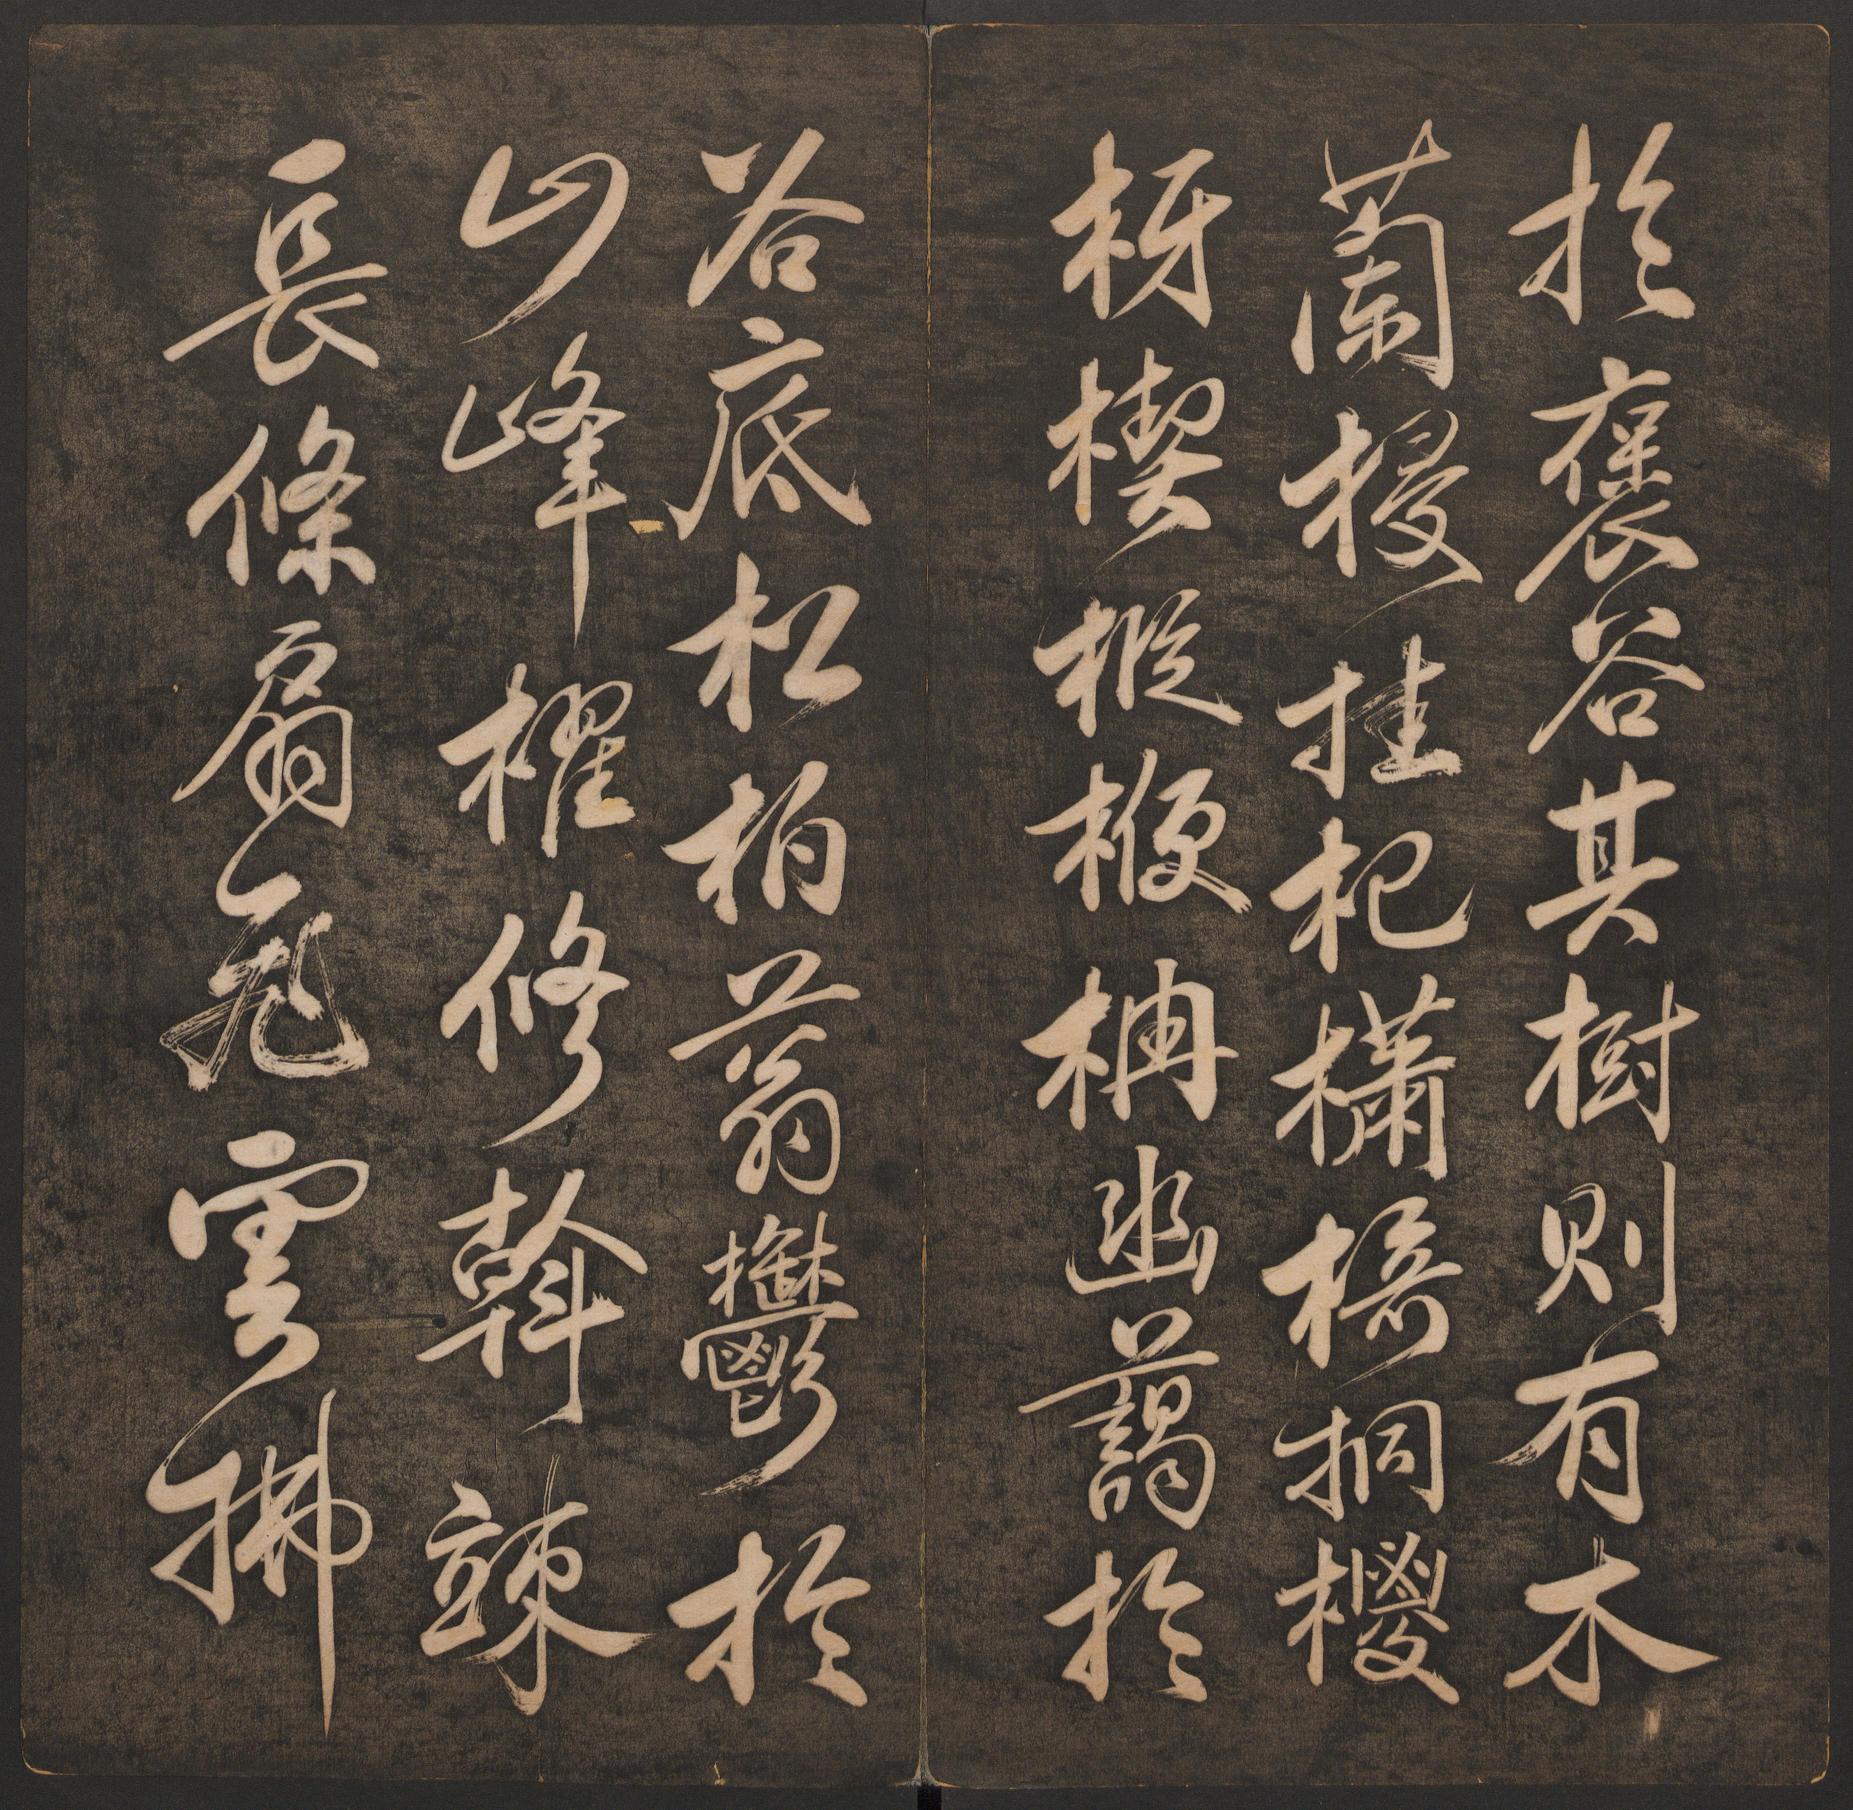 於褒谷其樹則有木
蘭梫桂杞櫹椅桐椶
枒楔樅楩柟幽藹於
谷底松柏蓊鬱於
山峰擢修幹竦
長條扇飛雲拂